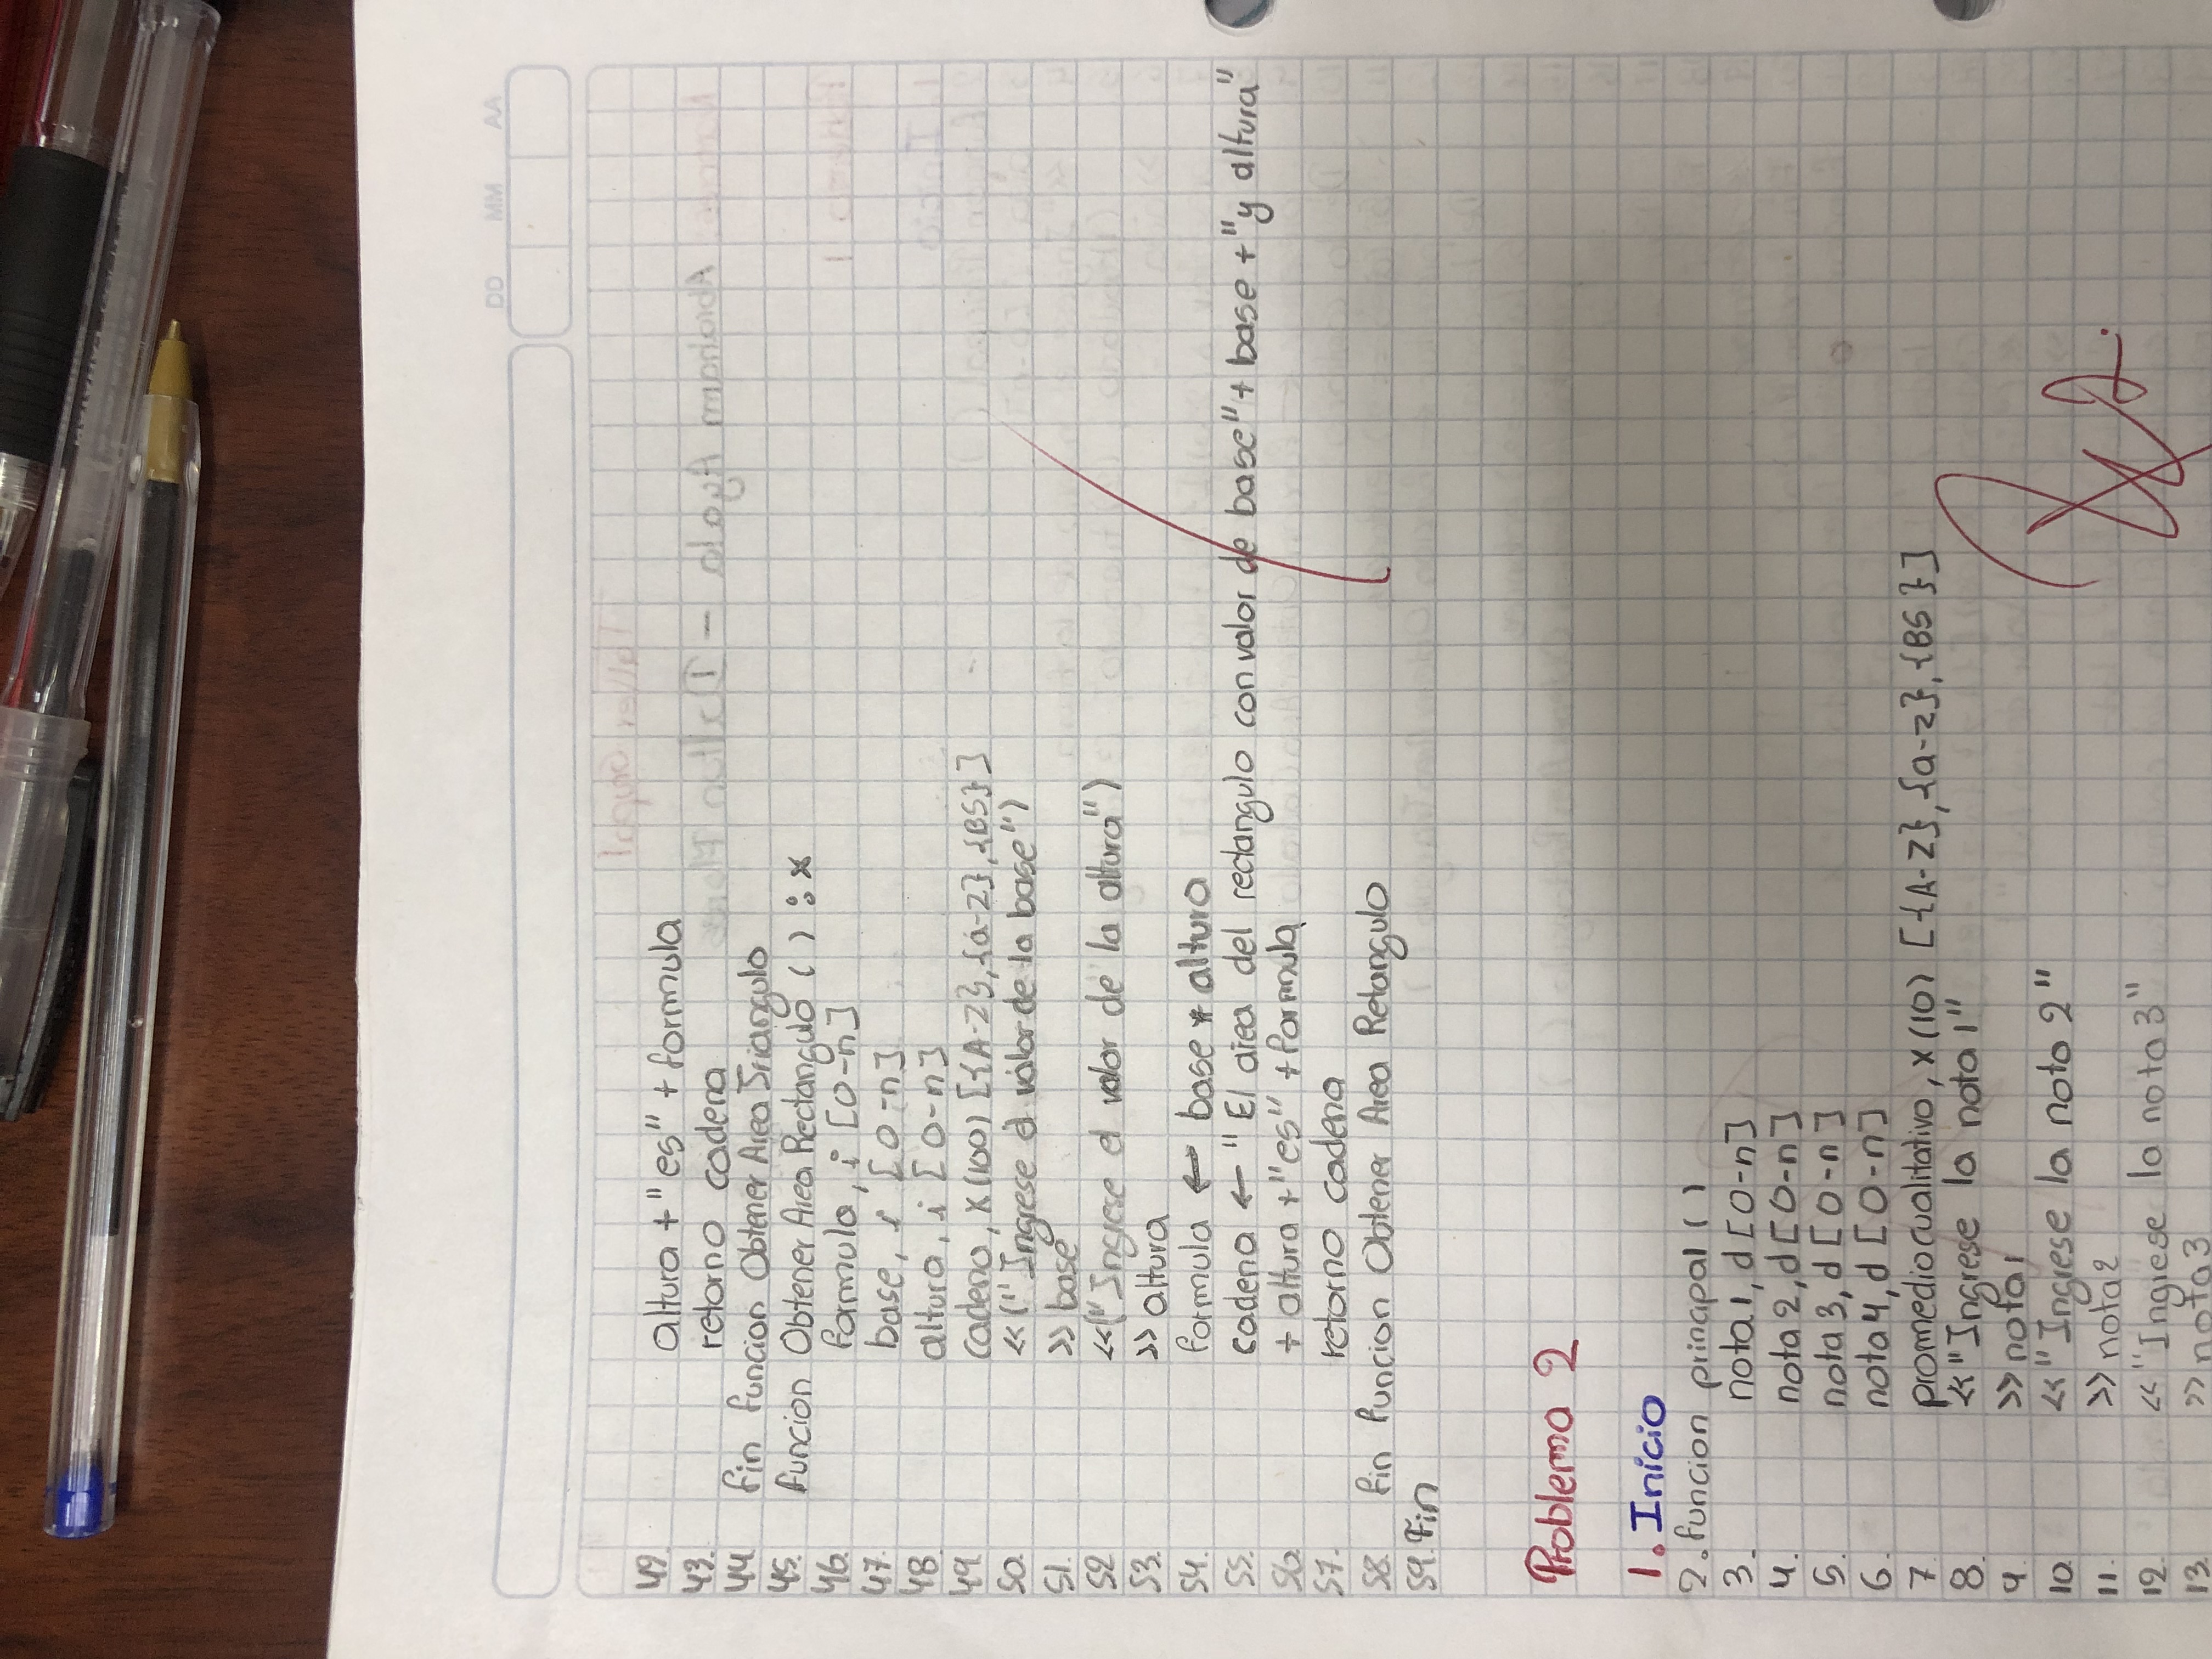 DD MM AA
42. altura + "es" + formula
43. retorno cadena
44 fin funcion Obtener Area Triangulo
45. funcion Obtener Area Rectangulo ( ) : x
46. formula, i [0-n]
47. base, i [0-n]
48. altura, i [0-n]
49. cadena, x (100) [{A-Z},{a-z},{BS}]
50. <<("Ingrese el valor de la base")
51. >> base
52 <<("Ingrese el valor de la altura")
53. >> altura
54. formula ← base * altura
55. cadena ← "El area del rectangulo con valor de base" + base + "y altura"
56 + altura + "es" + formula
57. retorno cadena
58. fin funcion Obtener Area Retangulo
59. Fin
Problema 2
1. Inicio
2. funcion principal ( )
3. nota1, d [0-n]
4. nota2, d [0-n]
5. nota3, d [0-n]
6. nota4, d [0-n]
7 promedio cualitativo, x (10) [{A-Z},{a-z},{BS}]
8. << "Ingrese la nota 1"
9 >> nota1
10. << "Ingrese la nota 2"
11. >> nota2
12. << "Ingrese la nota 3"
13. >> nota3